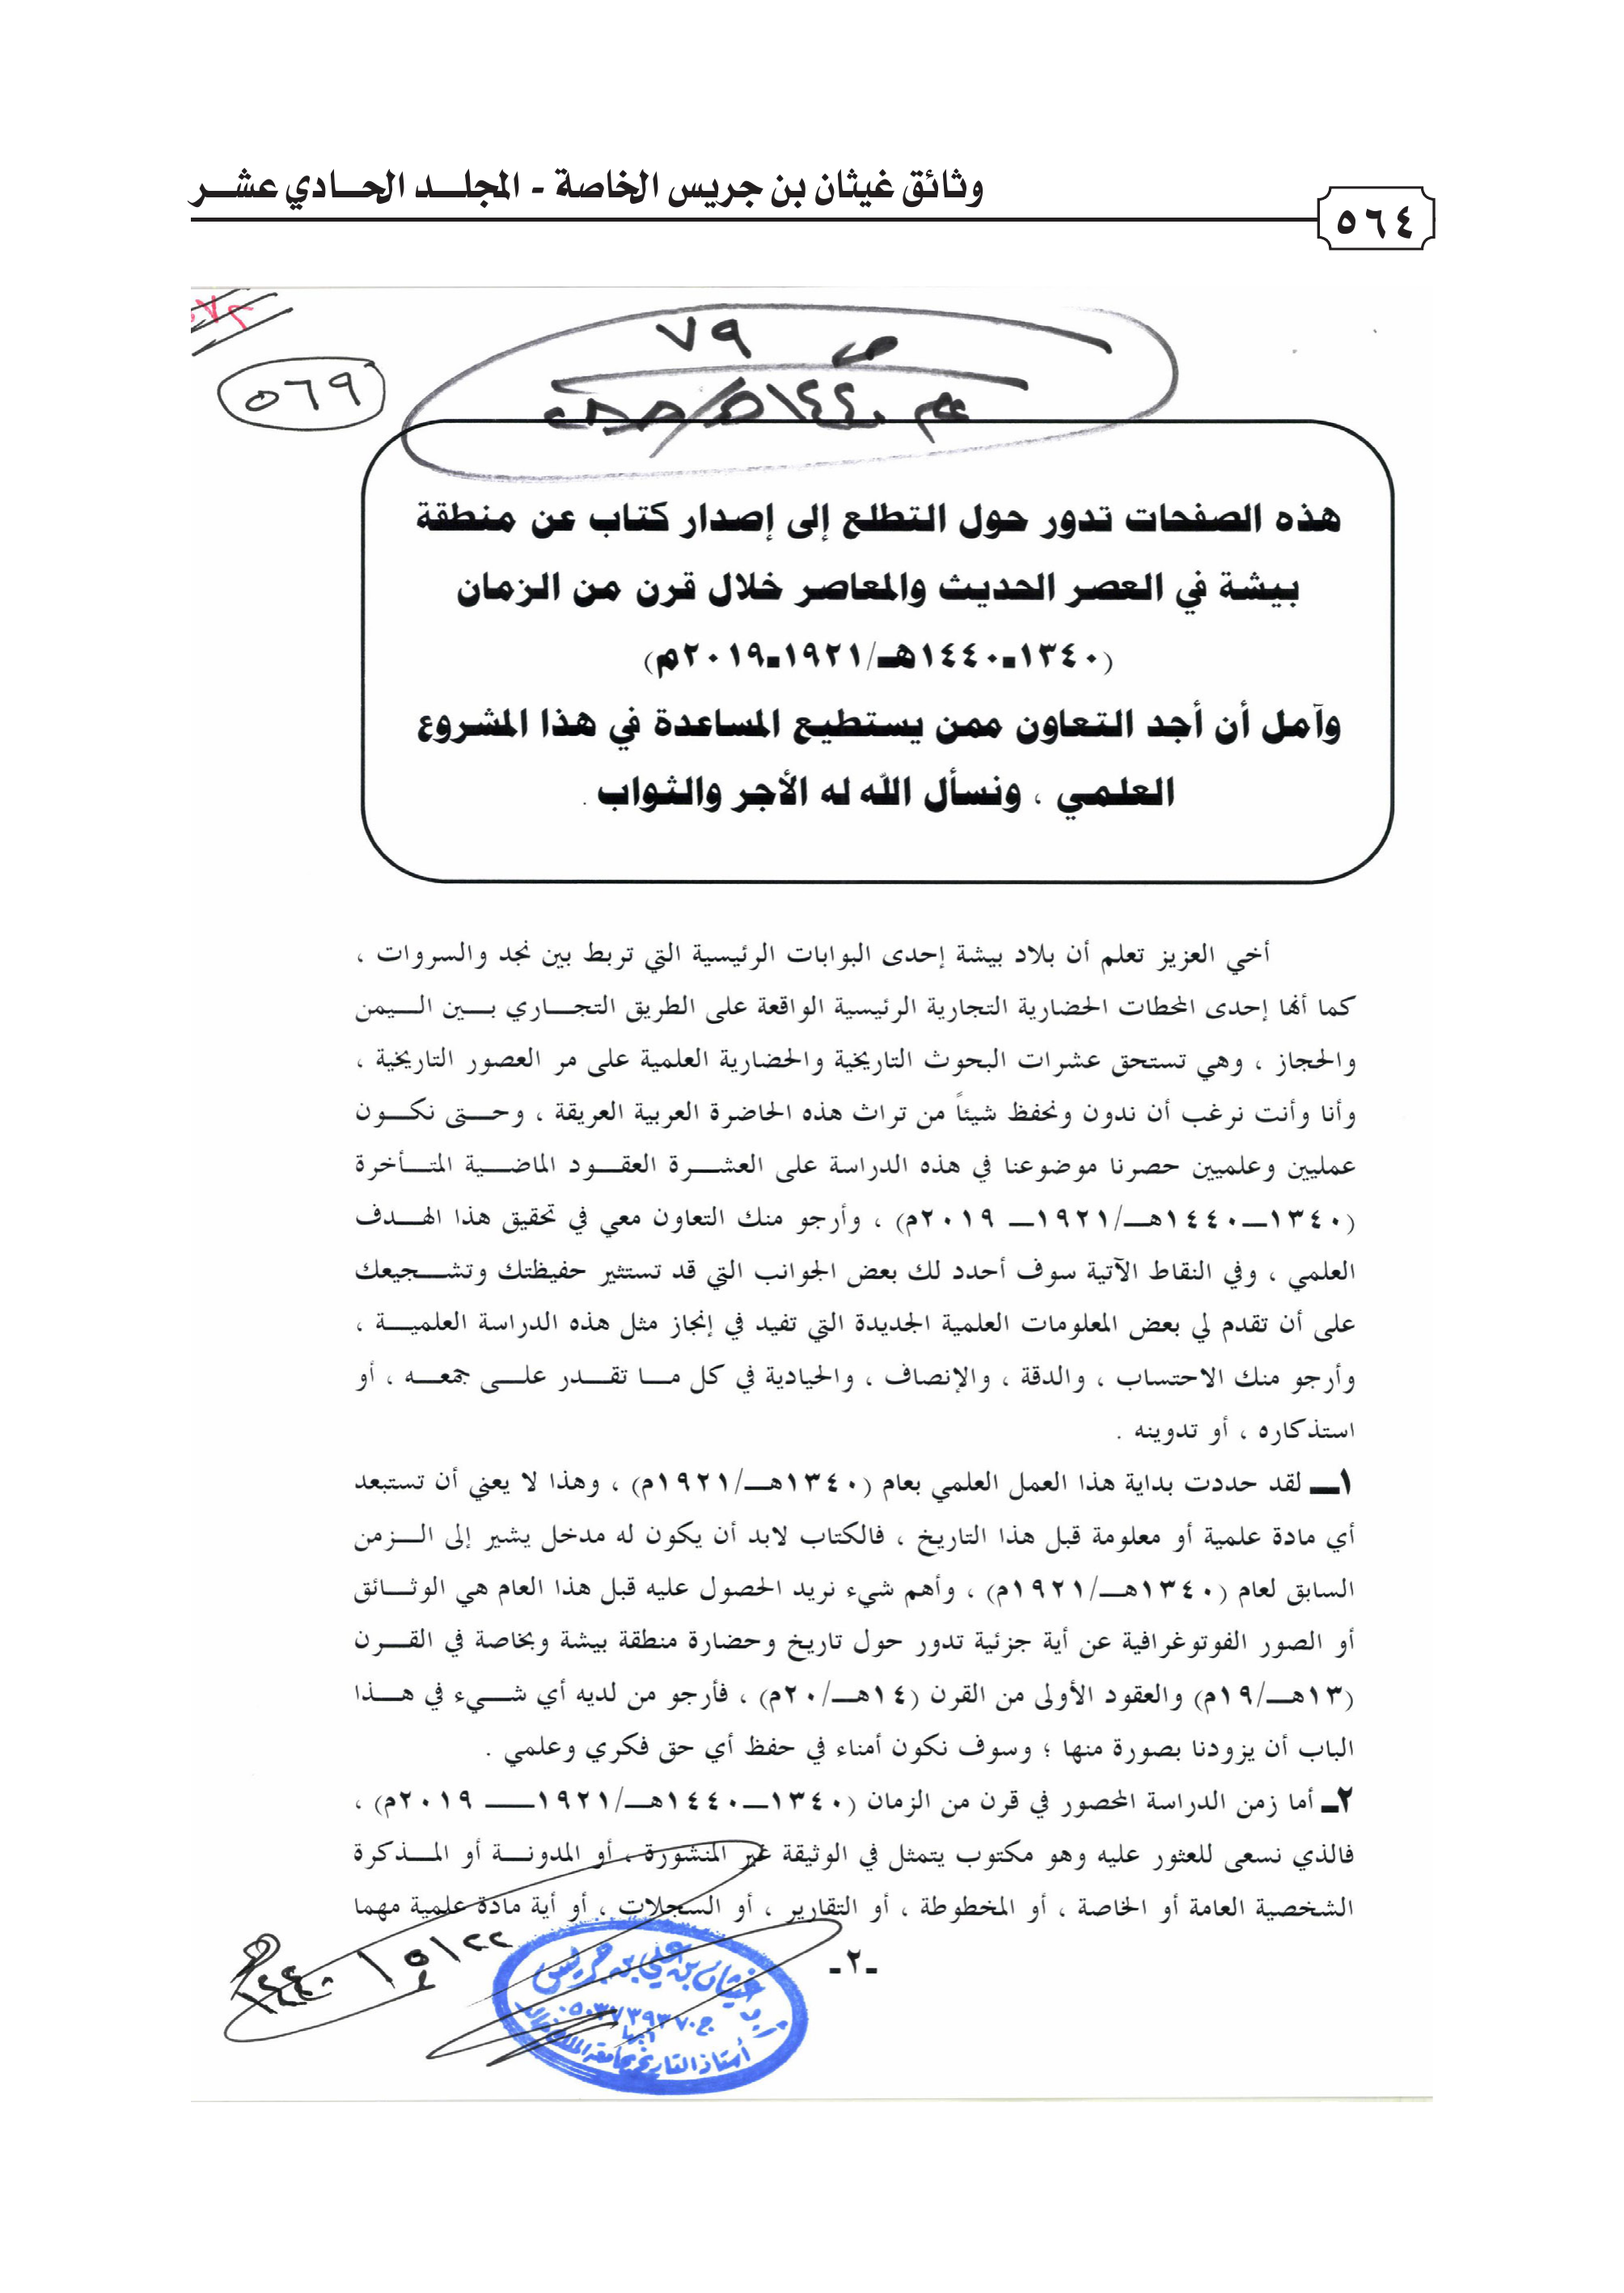 وثائق غيثان بن جريس الخاصة - المجلـــد الحـــادي عشـــر
٥٦٤
ص ٧٩
٥٦٩
عام ١٤٤٠هـ
هذه الصفحات تدور حول التطلع إلى إصدار كتاب عن منطقة
بيشة في العصر الحديث والمعاصر خلال قرن من الزمان
(١٣٤٠ـ١٤٤٠هـ/١٩٢١ـ٢٠١٩م)
وآمل أن أجد التعاون ممن يستطيع المساعدة في هذا المشروع
العلمي ، ونسأل الله له الأجر والثواب .
أخي العزيز تعلم أن بلاد بيشة إحدى البوابات الرئيسية التي تربط بين نجد والسروات ،
كما أنها إحدى المحطات الحضارية التجارية الرئيسية الواقعة على الطريق التجـــاري بـــين الـــيمن
والحجاز ، وهي تستحق عشرات البحوث التاريخية والحضارية العلمية على مر العصور التاريخية ،
وأنا وأنت نرغب أن ندون ونحفظ شيئاً من تراث هذه الحاضرة العربية العريقة ، وحـــتى نكـــون
عمليين وعلميين حصرنا موضوعنا في هذه الدراسة على العشـــرة العقـــود الماضـــية المتـــأخرة
(١٣٤٠ـــ١٤٤٠هـــ/١٩٢١ـــ ٢٠١٩م) ، وأرجو منك التعاون معي في تحقيق هذا الهـــدف
العلمي ، وفي النقاط الآتية سوف أحدد لك بعض الجوانب التي قد تستثير حفيظتك وتشـــجيعك
على أن تقدم لي بعض المعلومات العلمية الجديدة التي تفيد في إنجاز مثل هذه الدراسة العلميـــة ،
وأرجو منك الاحتساب ، والدقة ، والإنصاف ، والحيادية في كل مـــا تقـــدر علـــى جمعـــه ، أو
استذكاره ، أو تدوينه .
١ـــ لقد حددت بداية هذا العمل العلمي بعام (١٣٤٠هـــ/١٩٢١م) ، وهذا لا يعني أن تستبعد
أي مادة علمية أو معلومة قبل هذا التاريخ ، فالكتاب لابد أن يكون له مدخل يشير إلى الـــزمن
السابق لعام (١٣٤٠هـــ/١٩٢١م) ، وأهم شيء نريد الحصول عليه قبل هذا العام هي الوثـــائق
أو الصور الفوتوغرافية عن أية جزئية تدور حول تاريخ وحضارة منطقة بيشة وبخاصة في القـــرن
(١٣هـــ/١٩م) والعقود الأولى من القرن (١٤هـــ/٢٠م) ، فأرجو من لديه أي شـــيء في هـــذا
الباب أن يزودنا بصورة منها ؛ وسوف نكون أمناء في حفظ أي حق فكري وعلمي .
٢ـ أما زمن الدراسة المحصور في قرن من الزمان (١٣٤٠ـــ١٤٤٠هـــ/١٩٢١ـــ ٢٠١٩م) ،
فالذي نسعى للعثور عليه وهو مكتوب يتمثل في الوثيقة غير المنشورة ، أو المدونـــة أو المـــذكرة
الشخصية العامة أو الخاصة ، أو المخطوطة ، أو التقارير ، أو السجلات ، أو أية مادة علمية مهما
ـ٢ـ
٢٢/٥/١٤٤٠هـ
غيثان بن علي بن جريس
ج.٠٥٠٣٧٣٩٣٧٠
أبها
أستاذ التاريخ بجامعة الملك خالد